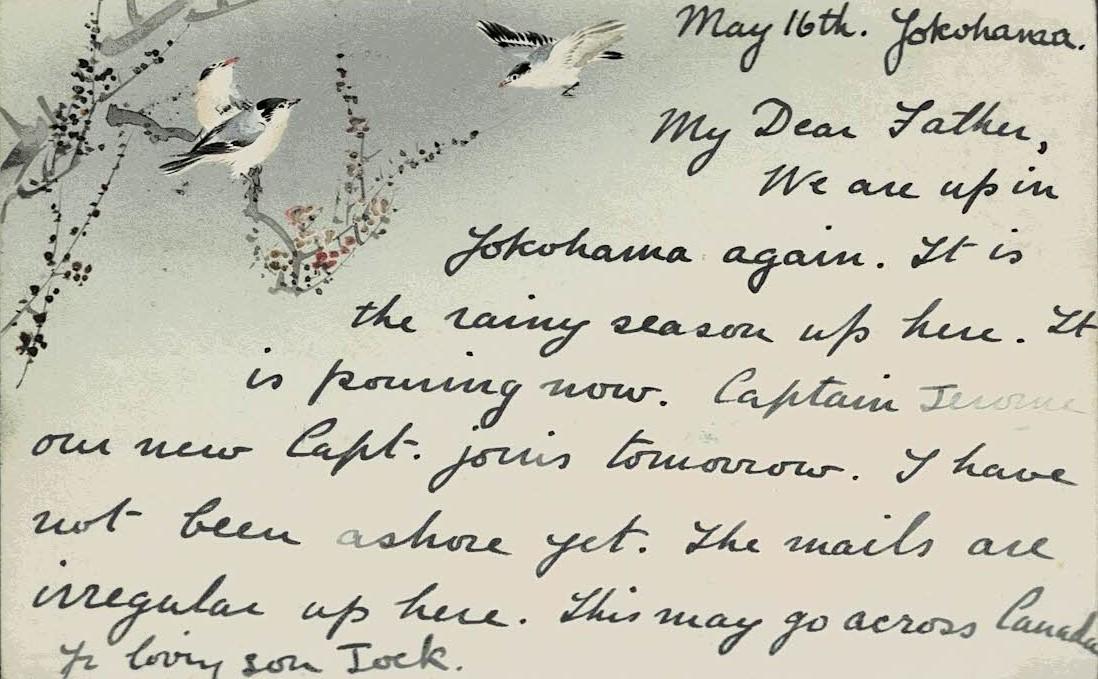 May 16th. Yokohama.
My Dear Father,
We are up in
Yokohama again. It is
the rainy season up here. It
is pouring now. Captain Jerome
our new Capt. joins tomorrow. I have
not been ashore yet. The mails are
irregular up here. This may go across Canada
Yr loving son Jock.